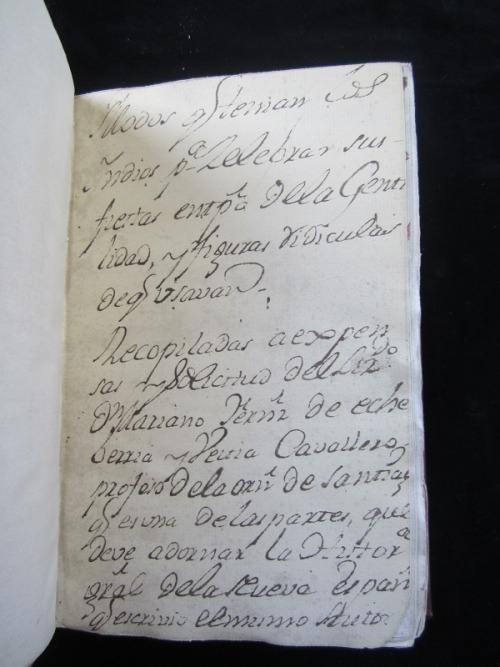 Modos q tenian los
Yndios pa Celebrar sus
fiestas en tpo de la Genti
lidad, y figuras ridiculas
de q usavan.
Recopiladas a expen
sas y Solicitud del Lizdo
Dn Mariano Fern de eche
berria y Veitia Cavallero
profeso de la orn de Santiago
q es una de las partes, que
deve adornar la Historia
gral de la Nueva España
q escrivio el mismo Autor